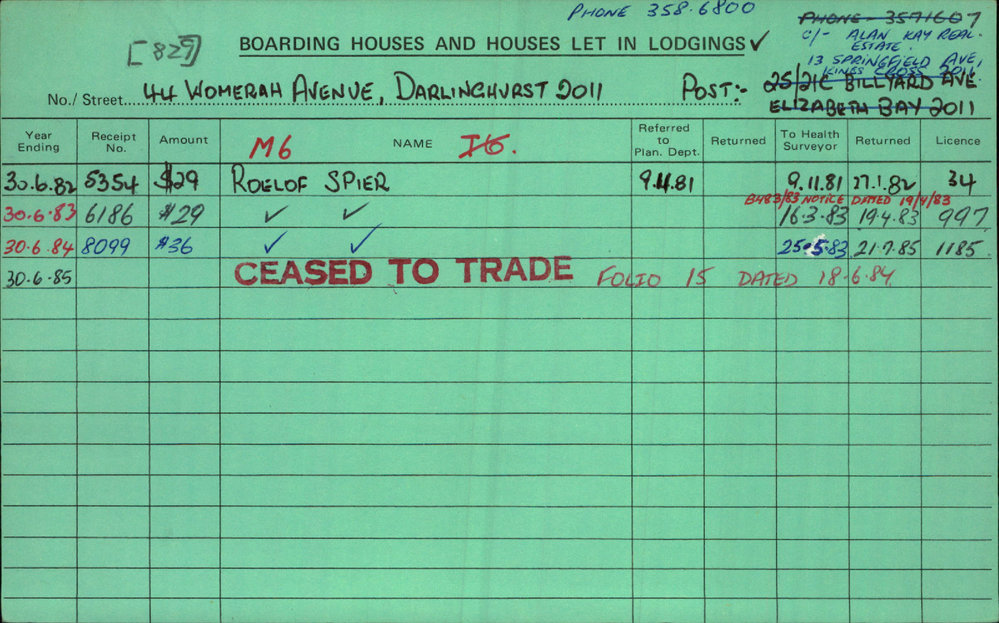 PHONE 358.6800
PHONE 3571607
[829]
BOARDING HOUSES AND HOUSES LET IN LODGINGS ✓
C/- ALAN KAY REAL ESTATE.
13 SPRINGFIELD AVE,
KINGS CROSS 2011.
No./ Street....44 WOMERAH AVENUE, DARLINGHURST 2011 POST:- 25/21C BILLYARD AVE
ELIZABETH BAY 2011
Year Ending Receipt No. Amount M6 NAME I6. Referred to Plan. Dept. Returned To Health Surveyor Returned Licence
30.6.82 5354 $29 ROELOF SPIER 9.11.81 9.11.81 27.1.82 34
B483/83 NOTICE DATED 19/4/83
30.6.83 6186 $29 ✓ ✓ 16.3.83 19.4.83 997
30.6.84 8099 $36 ✓ ✓ 25.5.83 21.7.85 1185
30.6.85 CEASED TO TRADE FOLIO 15 DATED 18.6.84